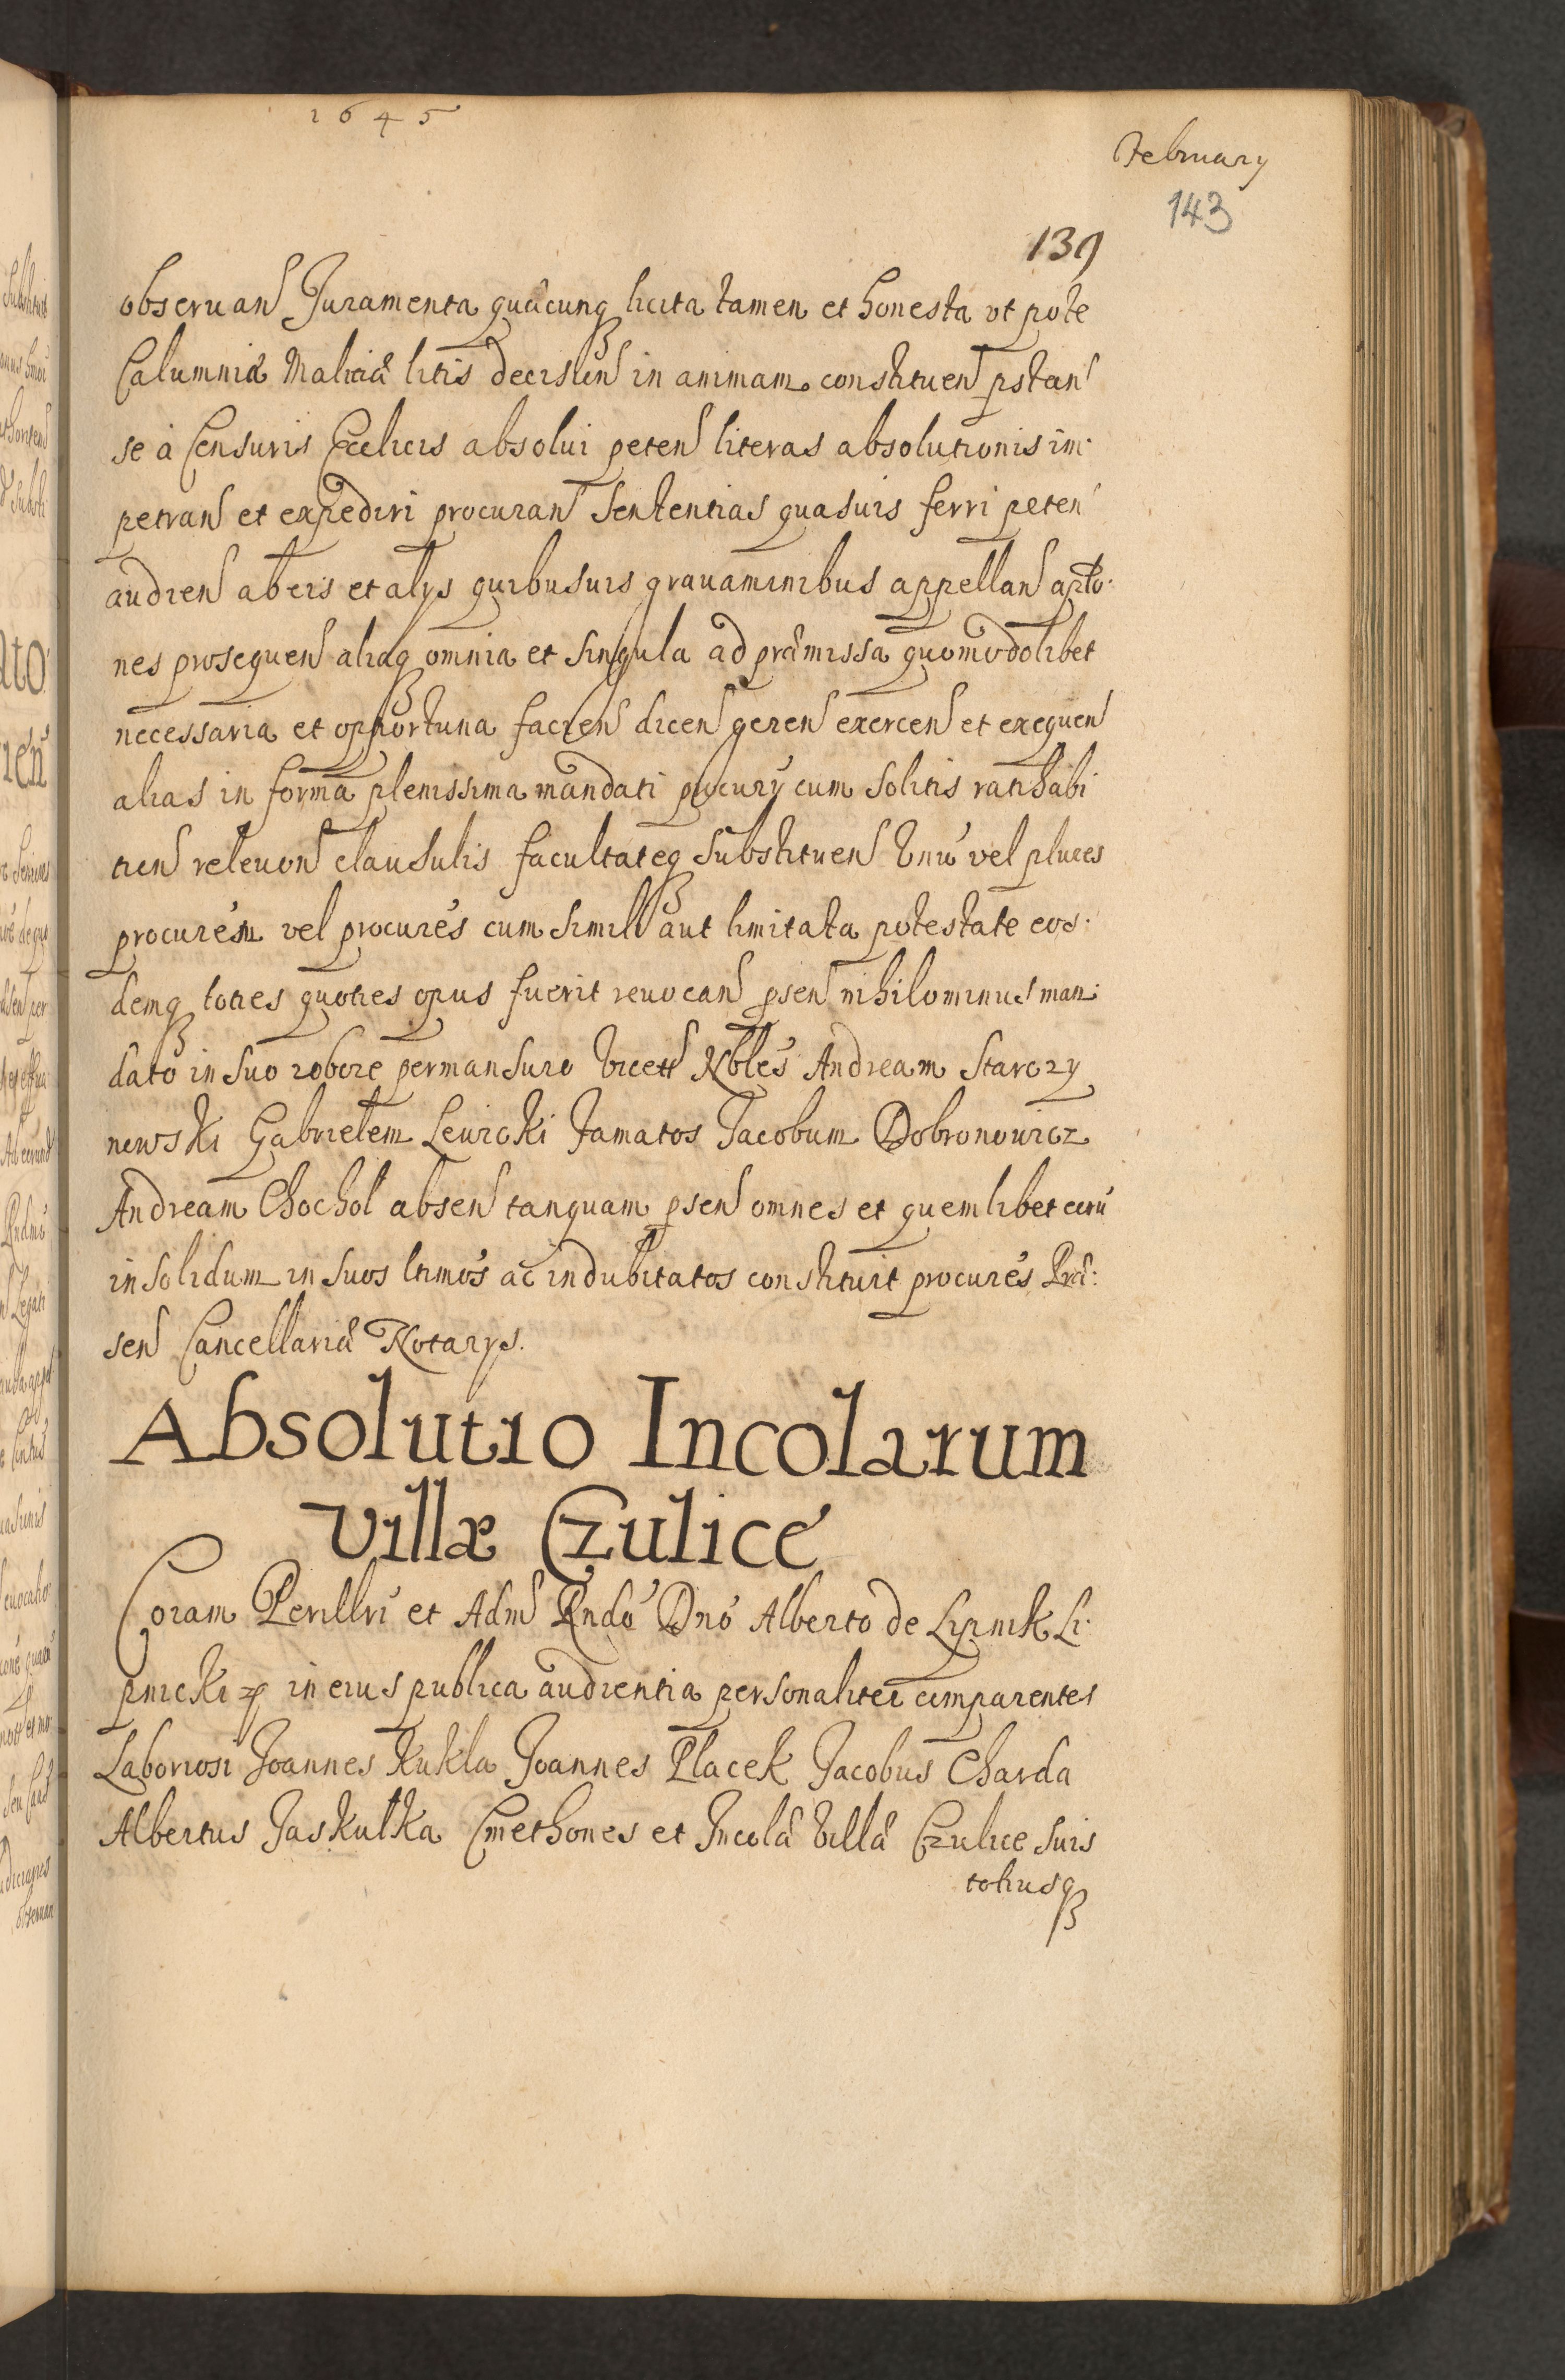 1645
February
143
139
obseruan Juramenta quæcunq licita tamen et honesta vt pote
Calumniæ Maliciæ litis decisien in animam constituen pstan
se à Censuris Ecclicis absolui peten literas absolutionis im-
petran et expediri procuran Sententias quasuis ferri peten
audien ab eis et alys quibusuis grauaminibus appellan aplo-
nes prosequen aliaq omnia et singula ad præmissa quomodolibet
necessaria et opportuna facien dicen geren exercen et exequen
alias in forma plenissima mandati procury cum solitis ratihabi
tien releuon clausulis facultateq substituen Vnū vel plures
procurem vel procures cum simili aut limitata potestate eos-
demq toties quoties opus fuerit reuocan psen nihilominus man-
dato in suo robore permansuro Nbles Andream Starczy
newski Gabrielem Leuicki Famatos Jacobum Dobronowicz
Andream Chochol absen tanquam psen omnes et quemlibet eorū
insolidum in suos ltimos ac indubitatos constituit procures Præ-
sen Cancellariæ Notarys.
Absolutio Incolarum
Villæ Czulice
Coram Perillri et Adm Rndo Dno Alberto de Lipnik Li-
pnicki in eius publica audientia personaliter comparentes
Laboriosi Joannes Kukla Joannes Placek Jacobus Charda
Albertus Jaskulka Cmethones et Incolæ Villæ Czulice suis
totiusq